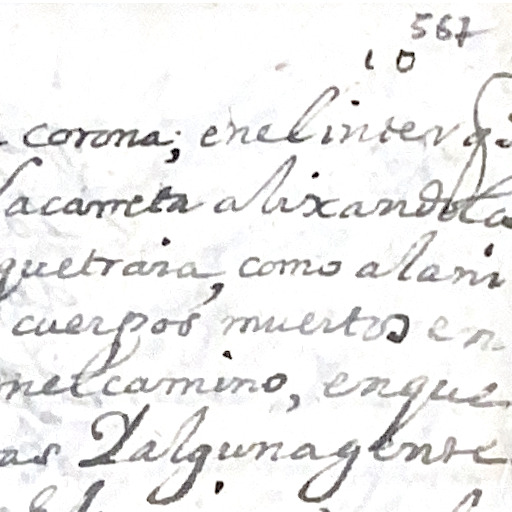 567
10
corona; enelinter q
lacarreta alixandola
quetraia, como alani
cuerpos muertos en
nelcamino, enque
as Dalgunagente